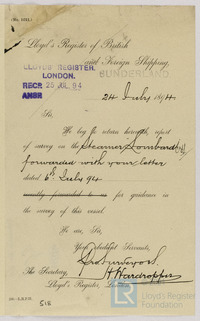 Lloyd's Register of British
and Foreign Shipping,
SUNDERLAND
LLOYD'S REGISTER,
LONDON.
RECD 25 JUL 94
ANSD
24 July 1894
Sir,
We beg to return herewith, report
of survey on the Steamer Lombard
forwarded with your letter
dated 6th July 94
exactly forwarded to us for guidance
in the survey of this vessel.
We are, Sir,
Your obedient Servants,
The Secretary,
Lloyd's Register, London
518
Lloyd's Register
Foundation